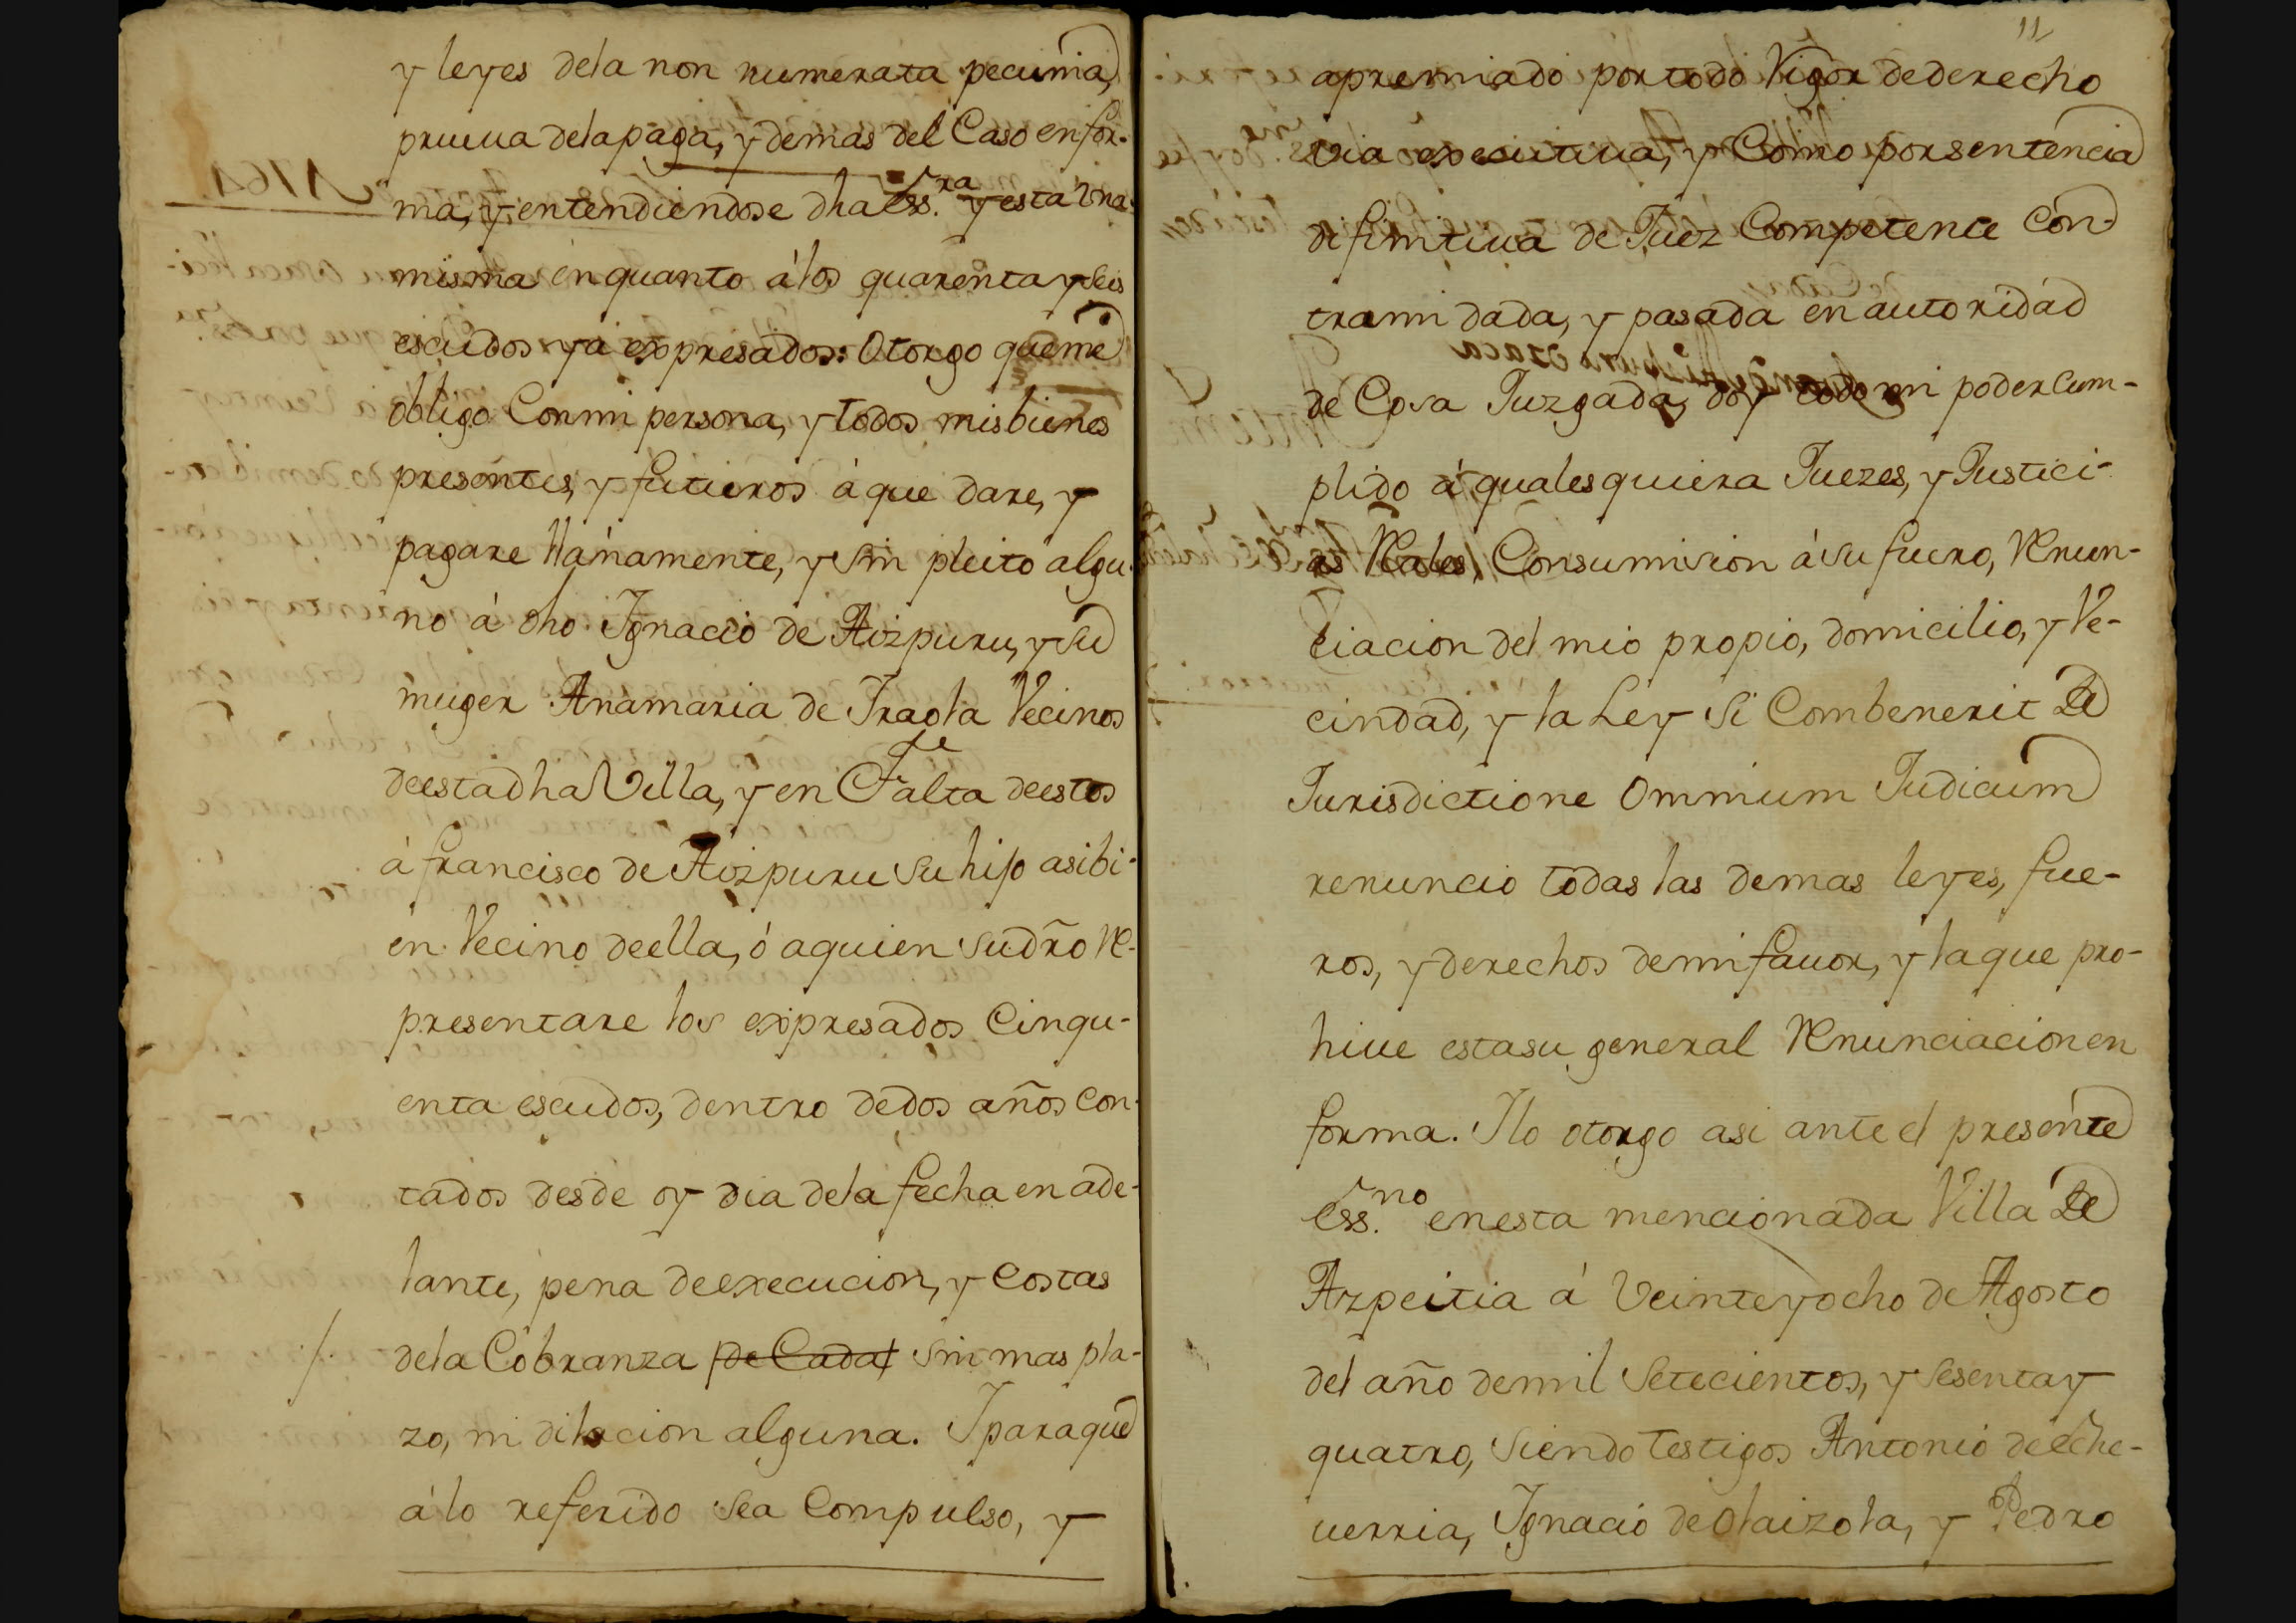 y leyes dela non numerata pecunia,
prueua dela paga, y demas del Caso en for-
ma, y entendiendose dha Ess.ra y esta Vna
misma en quanto á los quarenta y seis
escudos ya expresados: Otorgo que me
obligo Con mi persona, y todos mis bienes
presentes, y futuros á que dare, y
pagare llanamente, y sin pleito algu-
no á dho Ignacio de Aizpuru, y su
muger Anamaria de Iraola Vecinos
de esta dha Villa, y en Falta de estos
á francisco de Aizpuru su hijo asibi-
en Vecino de ella, ó aquien su dr̃o Re-
presentare los expresados Cinqu-
enta escudos, dentro de dos años con-
tados desde oy dia dela fecha en ade-
lante, pena de execucion, y Costas
dela Cobranza de Cada sin mas pla-
zo, ni dilacion alguna. Y para que
á lo referido sea Compulso, y
11
apremiado por todo Vigor de derecho
via executiua, y Como por sentencia
difinitiua de Juez Competente Con-
tra mi dada, y pasada en autoridad
de Cosa Juzgada, doy todo mi poder cum-
plido á qualesquiera Juezes, y Justici-
as Reales, Consumision á su fuero, Renun-
ciacion del mio propio, domicilio, y Ve-
cindad, y la Ley Si Combenerit De
Jurisdictione Omnium Judicum
renuncio todas las demas leyes, fue-
ros, y derechos de mi fauor, y la que pro-
hiue esta su general Renunciacion en
forma. Ilo otorgo asi ante el presente
Ess.no en esta mencionada Villa De
Azpeitia á Veinte y ocho de Agosto
del año de mil Setecientos, y Sesenta y
quatro, Siendo Testigos Antonio de eche-
uerria, Ignacio de Olaizola, y Pedro